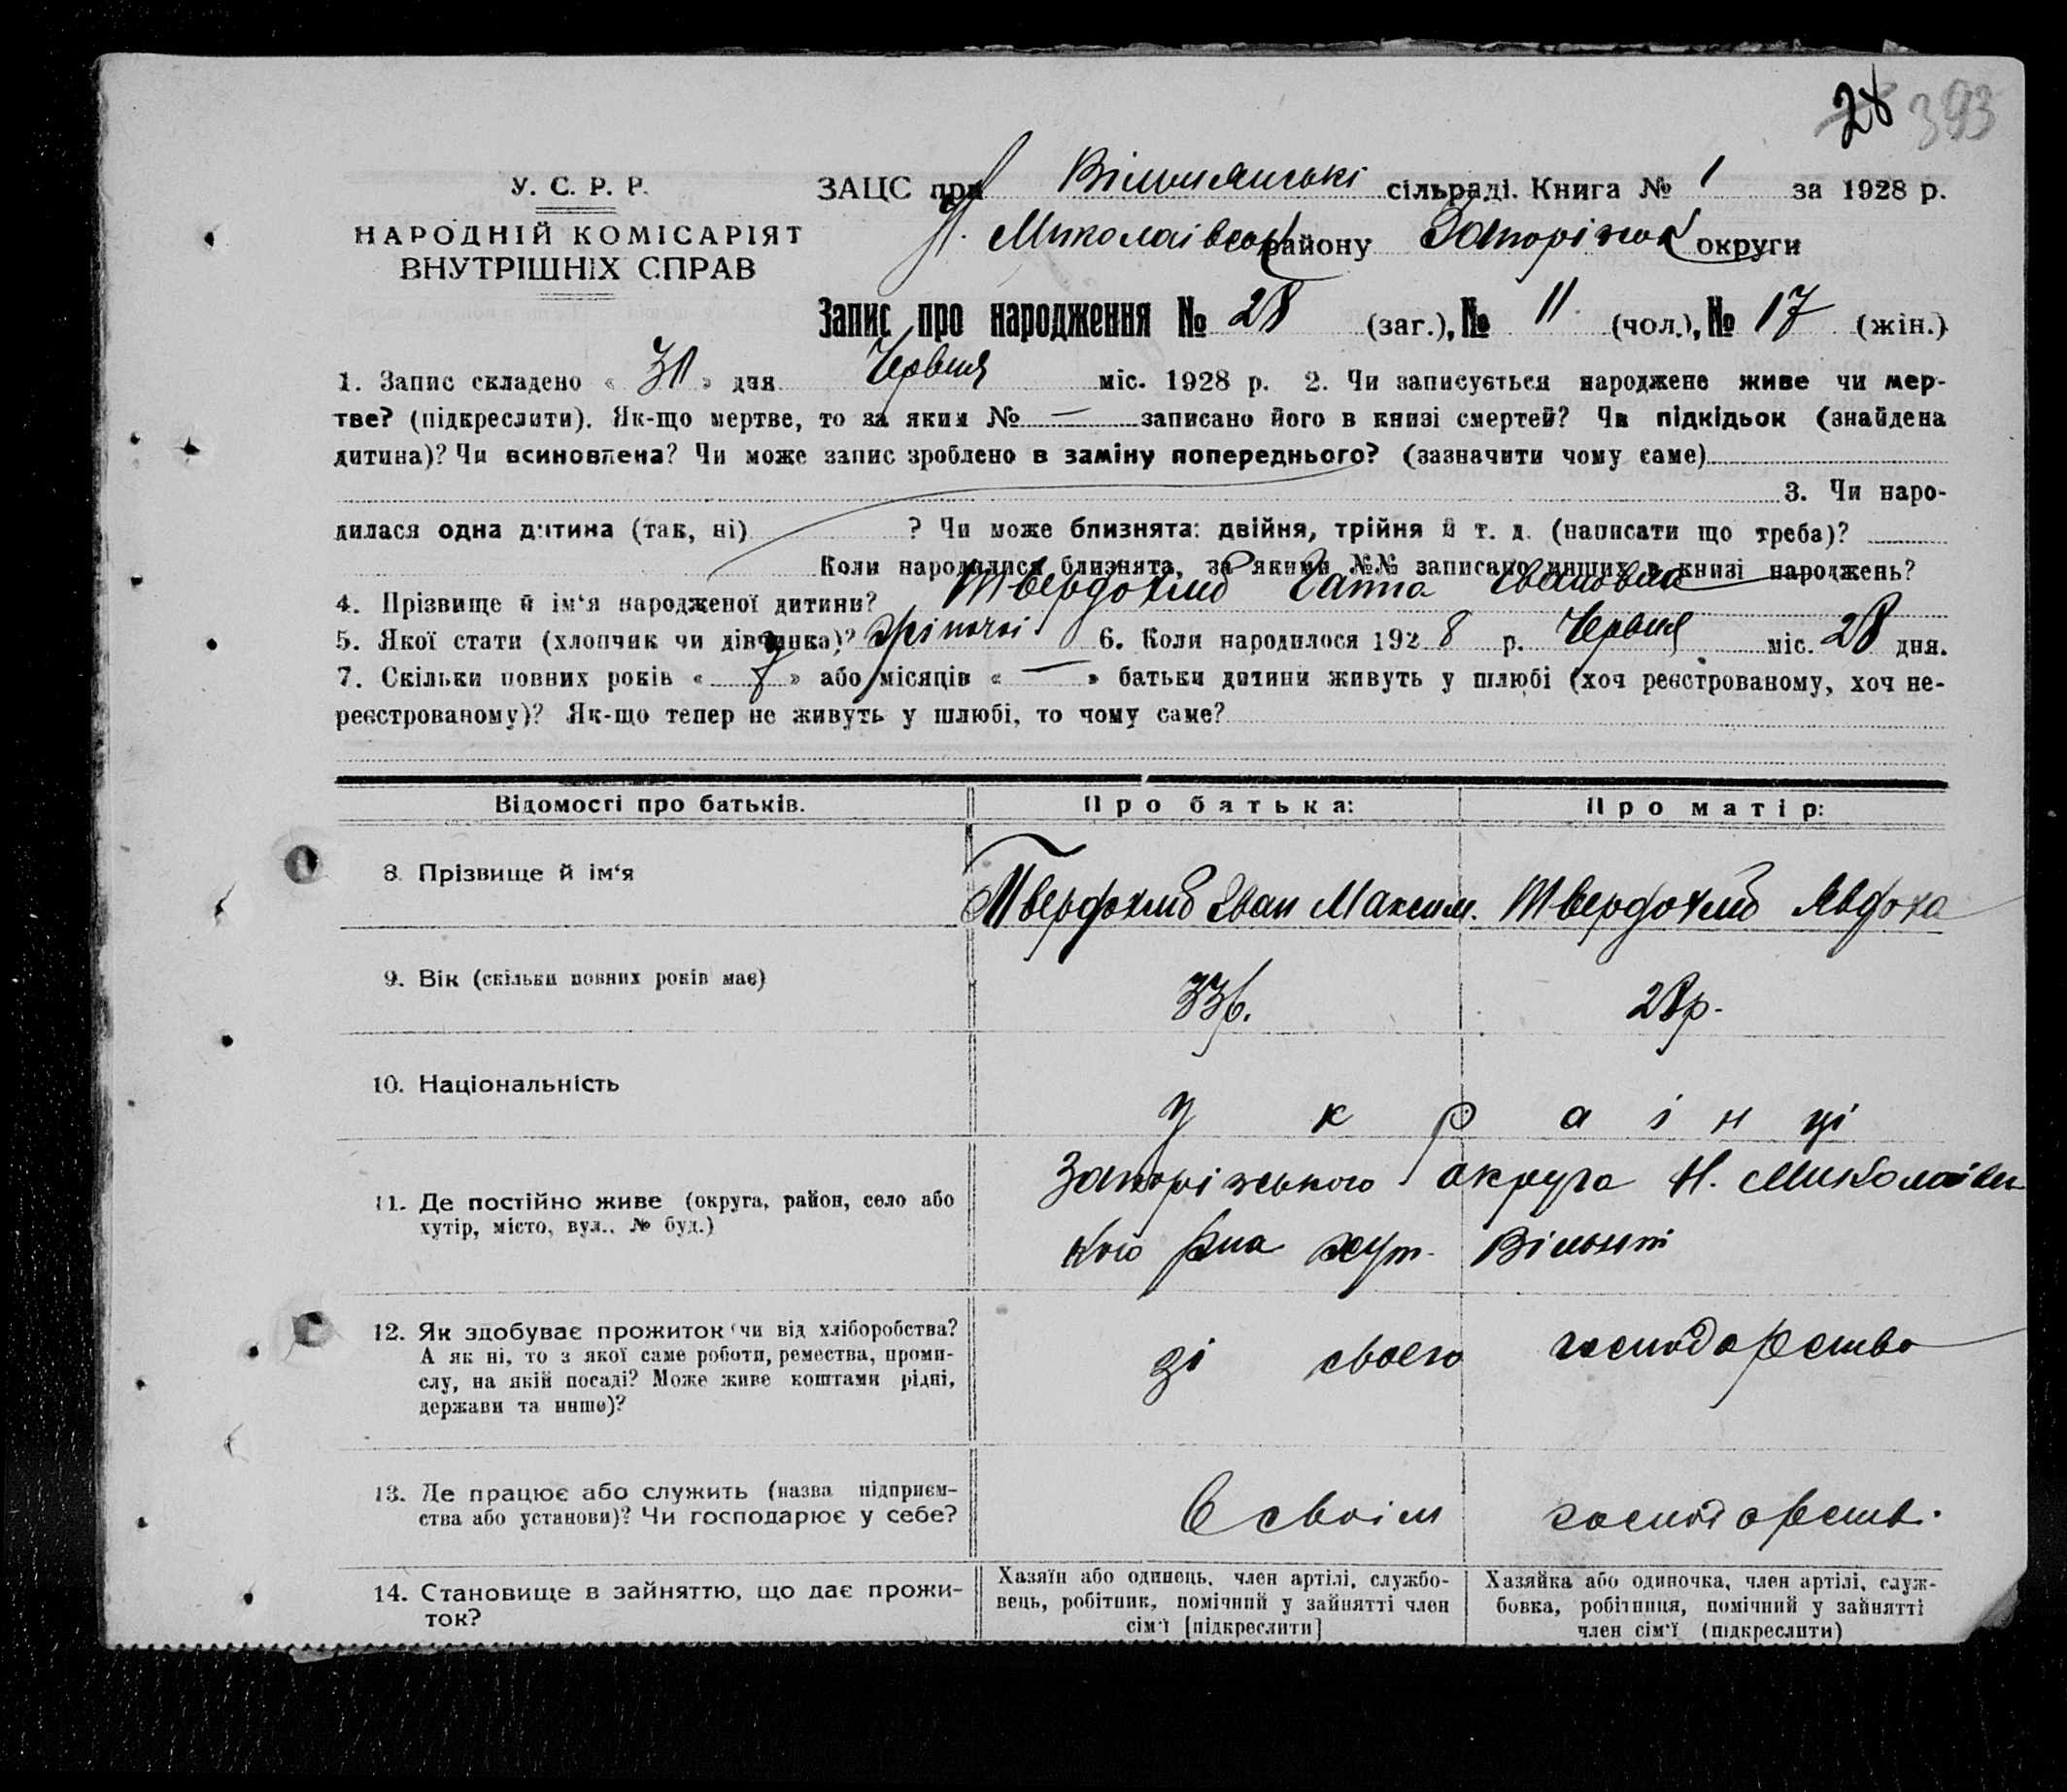 28 393
У. С. Р. Р.
НАРОДНІЙ КОМІСАРІЯТ
ВНУТРІШНІХ СПРАВ
ЗАЦС при сільраді. Книга № 1 за 1928 р.
Н. Миколаївськ району Запоріжок округи
Запис про народження № 28 (заг.), № 11 (чол.), № 17 (жін.)
1. Запис складено « 30 » дня Червня міс. 1928 р. 2. Чи записується народжене живе чи мер-
тве? (підкреслити). Як-що мертве, то за яким № — записано його в книзі смертей? Чи підкідьок (знайдена
дитина)? Чи всиновлена? Чи може запис зроблено в заміну попереднього? (зазначити чому саме)
3. Чи наро-
дилася одна дитина (так, ні) ? Чи може близнята: двійня, трійня й т. д. (написати що треба)?
Коли народилися близнята, за якими №№ записано инших в книзі народжень?
4. Прізвище й ім'я народженої дитини? Твердохліб Ганна Івановна
5. Якої стати (хлопчик чи дівчинка)? жіночої 6. Коли народилося 1928 р. Червня міс. 28 дня.
7. Скільки повних років « 7 » або місяців « — » батьки дитини живуть у шлюбі (хоч реєстрованому, хоч не-
реєстрованому)? Як-що тепер не живуть у шлюбі, то чому саме?
Відомості про батьків. Про батька: Про матір:
8. Прізвище й ім'я Твердохліб Іван Максим. Твердохліб Явдоха
9. Вік (скільки повних років має) 33р. 28р.
10. Національність українці
11. Де постійно живе (округа, район, село або
хутір, місто, вул., № буд.)
Запоріжського округа Н. Миколаївсь
кого рна хут.
12. Як здобуває прожиток (чи від хліборобства?
А як ні, то з якої саме роботи, ремества, проми-
слу, на якій посаді? Може живе коштами рідні,
держави та инше)?
зі свого господарства
13. Де працює або служить (назва підприєм-
ства або установи)? Чи господарює у себе?
в своїм господарств.
14. Становище в зайняттю, що дає прожи-
ток?
Хазяїн або одинець, член артілі, службо-
вець, робітник, помічний у зайнятті член
сім'ї [підкреслити]
Хазяйка або одиночка, член артілі, служ-
бовка, робітниця, помічний у зайнятті
член сім'ї (підкреслити)